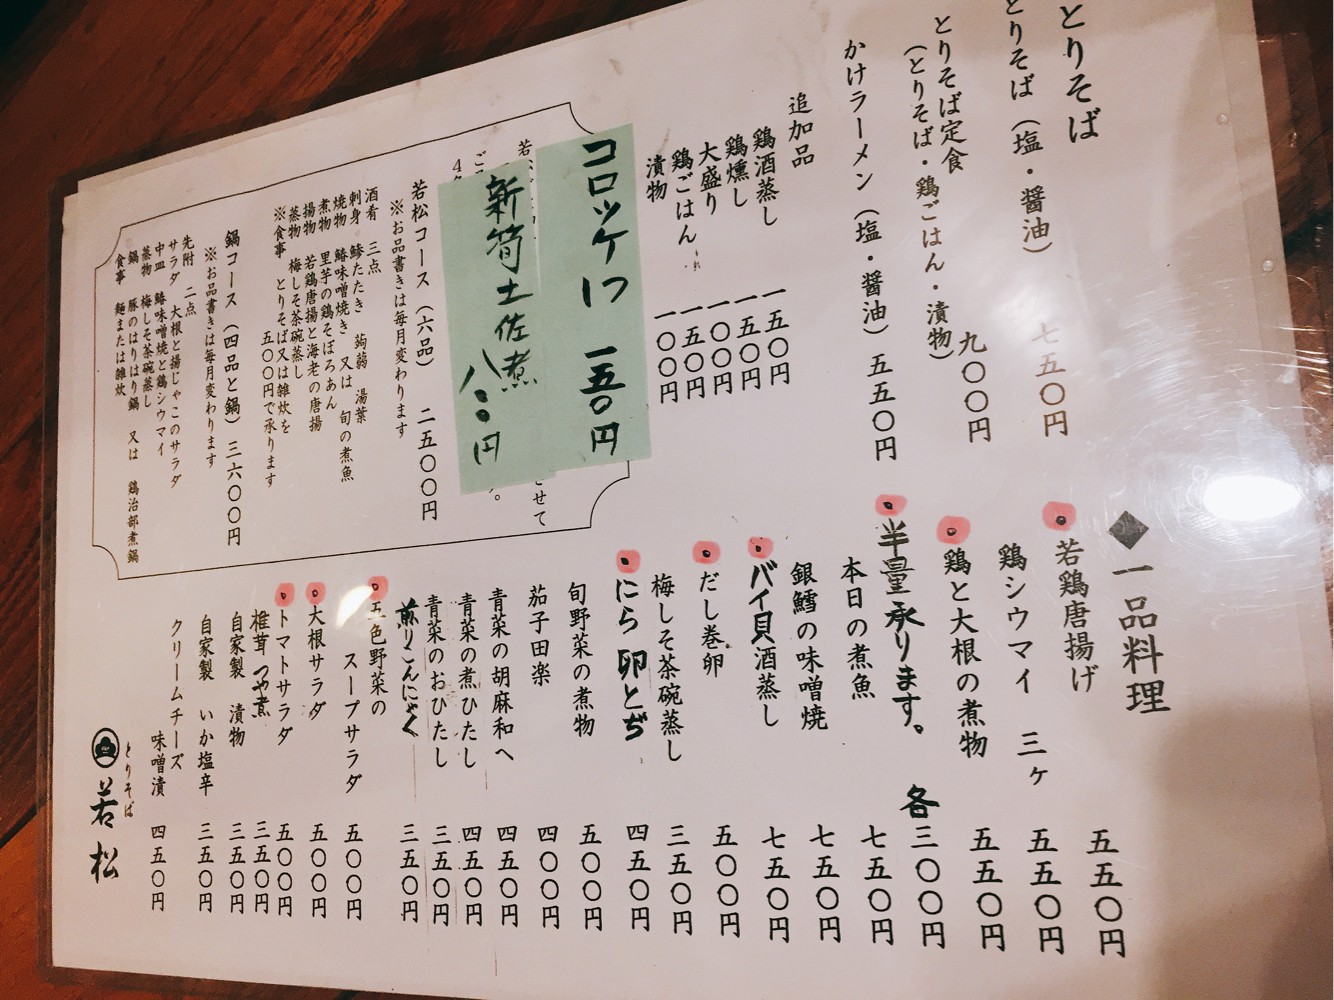 とりそば
とりそば（塩・醤油） 七五〇円
とりそば定食 九〇〇円
（とりそば・鶏ごはん・漬物）
かけラーメン（塩・醤油） 五五〇円
追加品
鶏酒蒸し 一五〇円
鶏燻し 一五〇円
大盛り 一〇〇円
鶏ごはん 一五〇円
漬物 一〇〇円
コロッケ1つ 一五〇円
新筍土佐煮 八〇〇円
若松コース（六品） 二五〇〇円
※お品書きは毎月変わります
酒肴 三点
刺身 鯵たたき 蒟蒻 湯葉
焼物 鰆味噌焼き 又は 旬の煮魚
煮物 里芋の鶏そぼろあん
揚物 若鶏唐揚と海老の唐揚
蒸物 梅しそ茶碗蒸し
※食事 とりそば又は雑炊を
五〇〇円で承ります
鍋コース（四品と鍋）三六〇〇円
※お品書きは毎月変わります
先附 二点
サラダ 大根と揚じゃこのサラダ
中皿 鰆味噌焼と鶏シウマイ
蒸物 梅しそ茶碗蒸し
鍋 豚のはりはり鍋 又は 鶏治部煮鍋
食事 麺または雑炊
◆一品料理
若鶏唐揚げ 五五〇円
鶏シウマイ 三ヶ 五五〇円
鶏と大根の煮物 五五〇円
半量承ります。 各三〇〇円
本日の煮魚 七五〇円
銀鱈の味噌焼 七五〇円
バイ貝酒蒸し 七五〇円
だし巻卵 五〇〇円
梅しそ茶碗蒸し 三五〇円
にら卵とぢ 四五〇円
旬野菜の煮物 五〇〇円
茄子田楽 四〇〇円
青菜の胡麻和へ 四五〇円
青菜の煮ひたし 四五〇円
青菜のおひたし 三五〇円
煎りこんにゃく 三五〇円
五色野菜の
スープサラダ 五〇〇円
大根サラダ 五〇〇円
トマトサラダ 五〇〇円
椎茸つや煮 三五〇円
自家製 漬物 三五〇円
自家製 いか塩辛 三五〇円
クリームチーズ
味噌漬 四五〇円
とりそば
若松